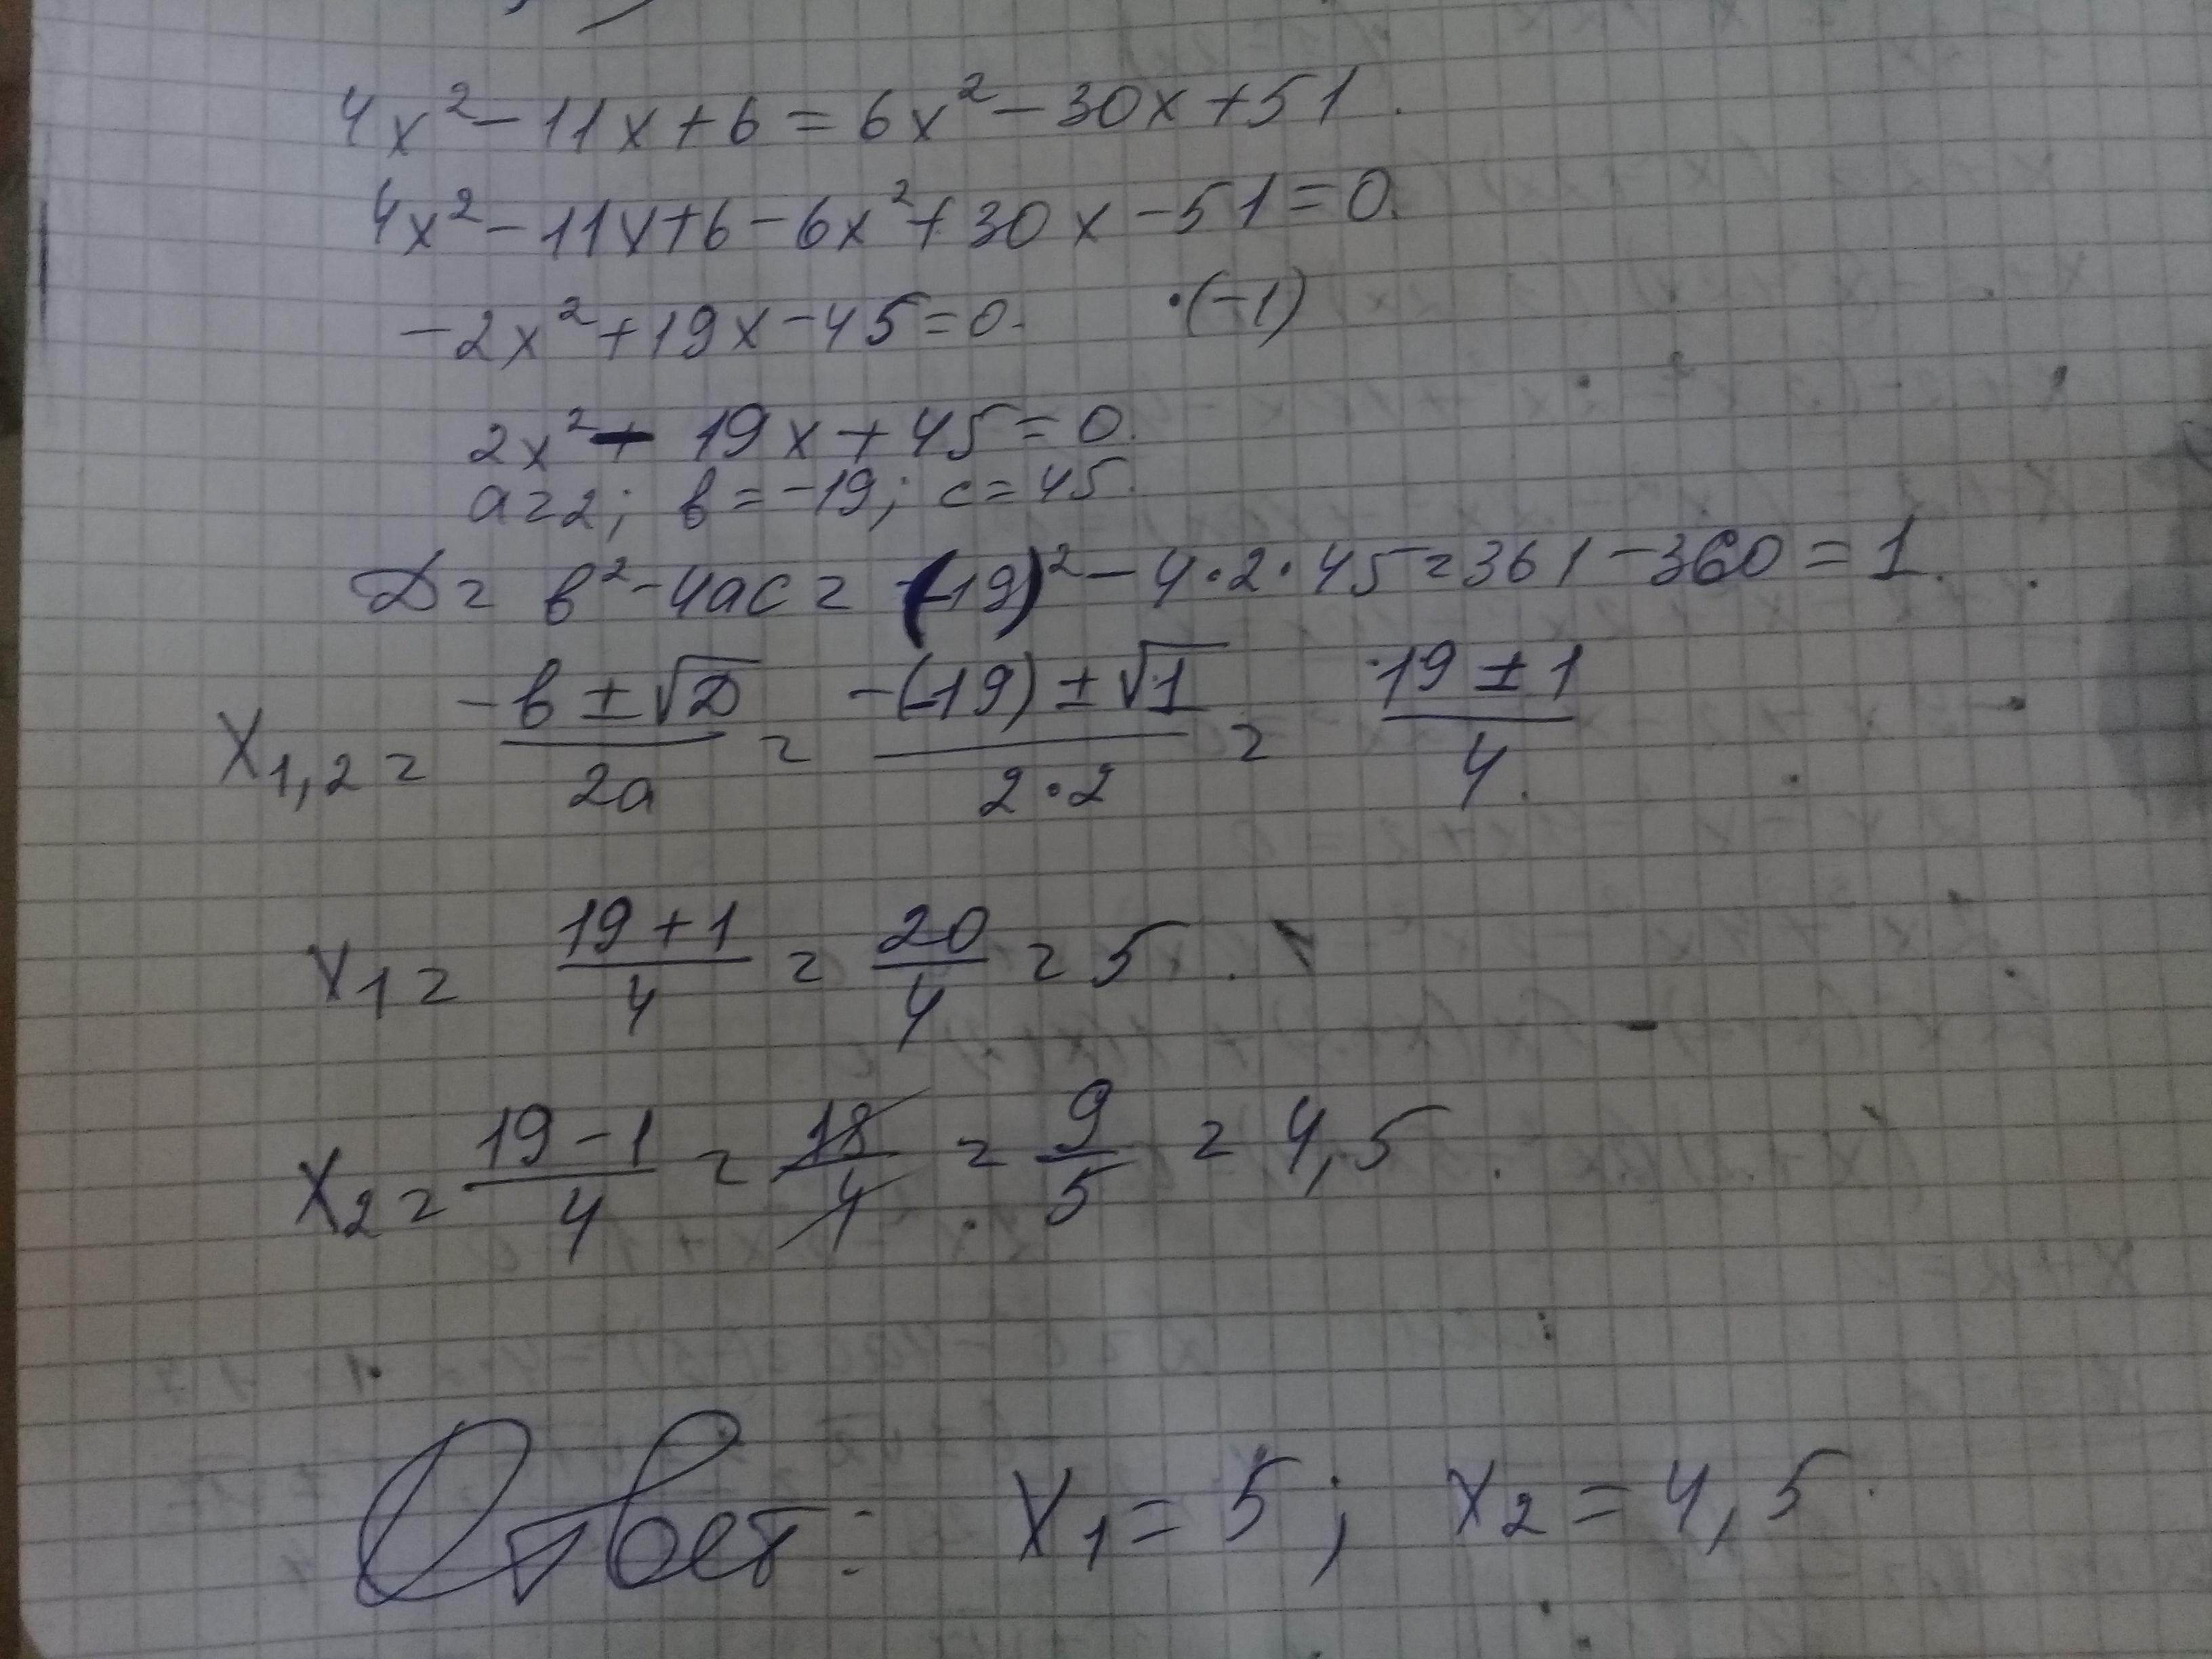 4x² - 11x + 6 = 6x² - 30x + 51.
4x² - 11x + 6 - 6x² + 30x - 51 = 0.
-2x² + 19x - 45 = 0. ·(-1)
2x² - 19x + 45 = 0.
a = 2; b = -19; c = 45.
D = b² - 4ac = (-19)² - 4·2·45 = 361 - 360 = 1.
X₁,₂ = (-b ± √D)/(2a) = (-(-19) ± √1)/(2·2) = (19 ± 1)/4.
x₁ = (19 + 1)/4 = 20/4 = 5.
x₂ = (19 - 1)/4 = 18/4 = 9/5 = 4,5.
Ответ: x₁ = 5; x₂ = 4,5.